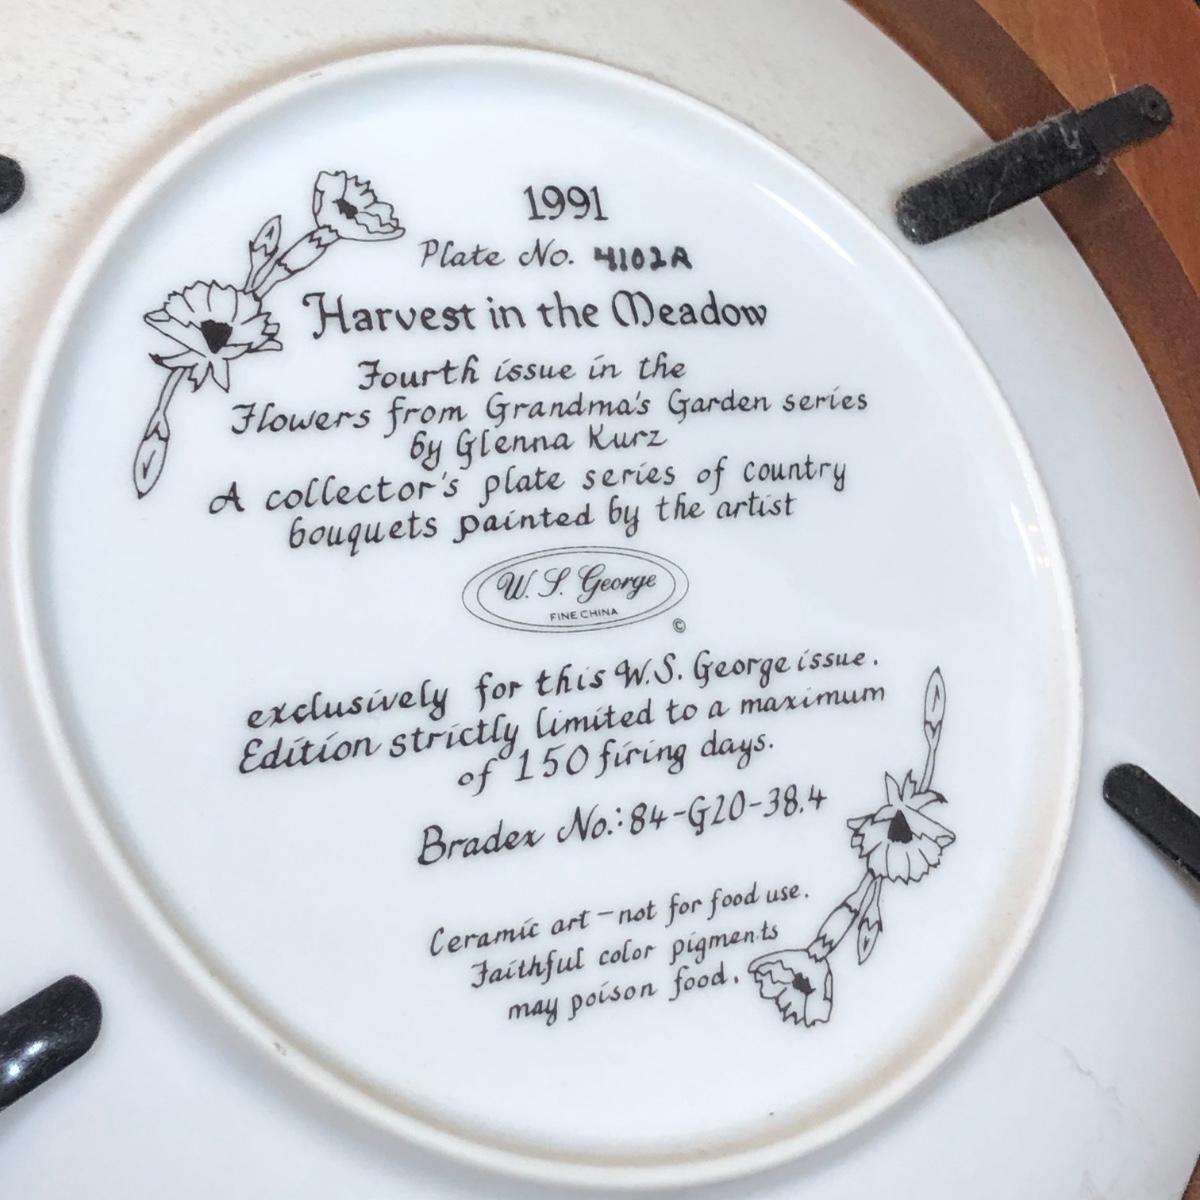 1991
Plate No. 4102A
Harvest in the Meadow
Fourth issue in the
Flowers from Grandma's Garden series
by Glenna Kurz
A collector's plate series of country
bouquets painted by the artist
W. S. George
FINE CHINA
©
exclusively for this W.S. George issue.
Edition strictly limited to a maximum
of 150 firing days.
Bradex No.: 84-G20-38.4
Ceramic art - not for food use.
Faithful color pigments
may poison food.